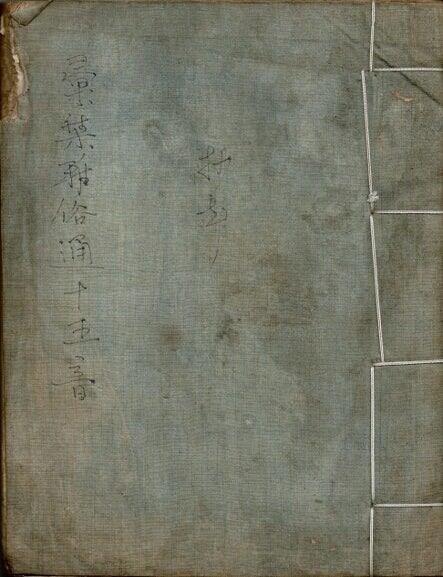 彙集雅俗通十五音